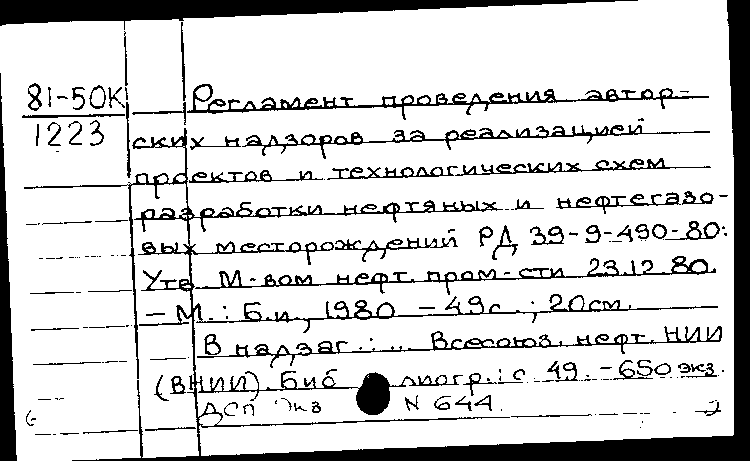 81-50К
1223
Регламент проведения автор-
ских надзоров за реализацией
проектов и технологических схем
разработки нефтяных и нефтегазо-
вых месторождений РД 39-9-490-80:
Утв М-вом нефт. пром-сти 23.12.80.
— М.: Б.и., 1980 — 49с.; 20см.
В надзаг.: ... Всесоюз. нефт. НИИ
(ВНИИ). Библиогр.: с 49. — 650 экз.
ДСП Экз N 644.